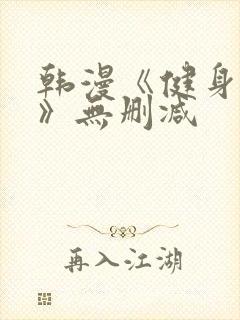 韩漫《健身
》無删减
再入江湖